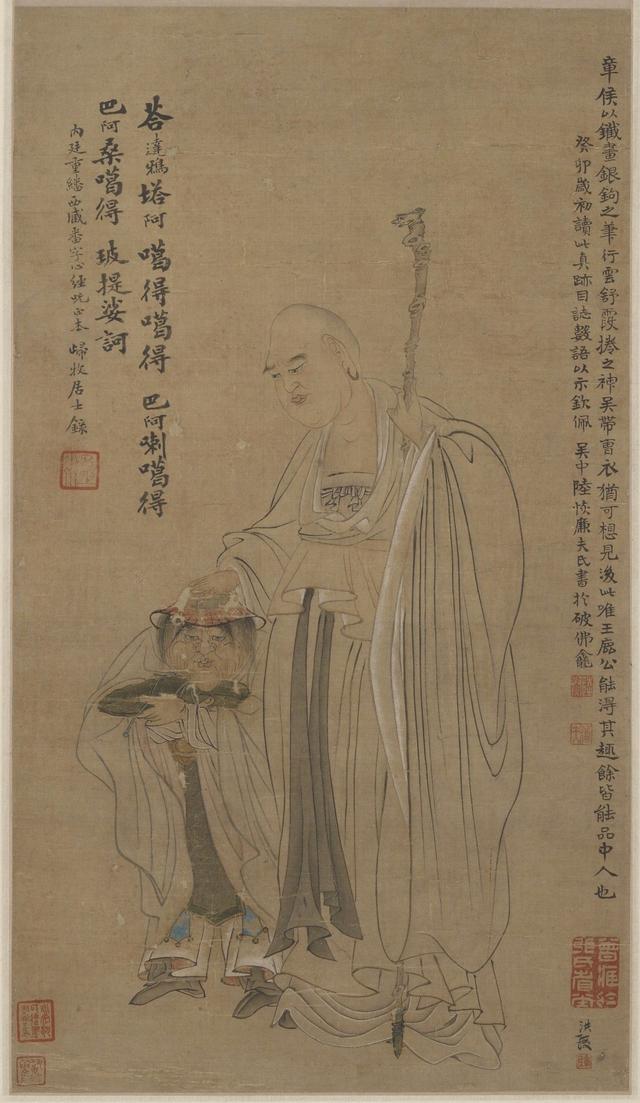 章侯以鐵畫銀鉤之筆行雲舒霞捲之神吳帶曹衣猶可想見後此唯王廌公能得其趣餘皆能品中人也
癸卯歲初讀此真跡目誌數語以示欽佩 吳中陸恢廉夫氏書於破佛龕
荅達鴉塔阿噶得噶得 巴阿喇噶得
巴阿桑噶得 玻提娑訶
內廷重繙西藏番字心經咒正本 歸牧居士錄
洪綬